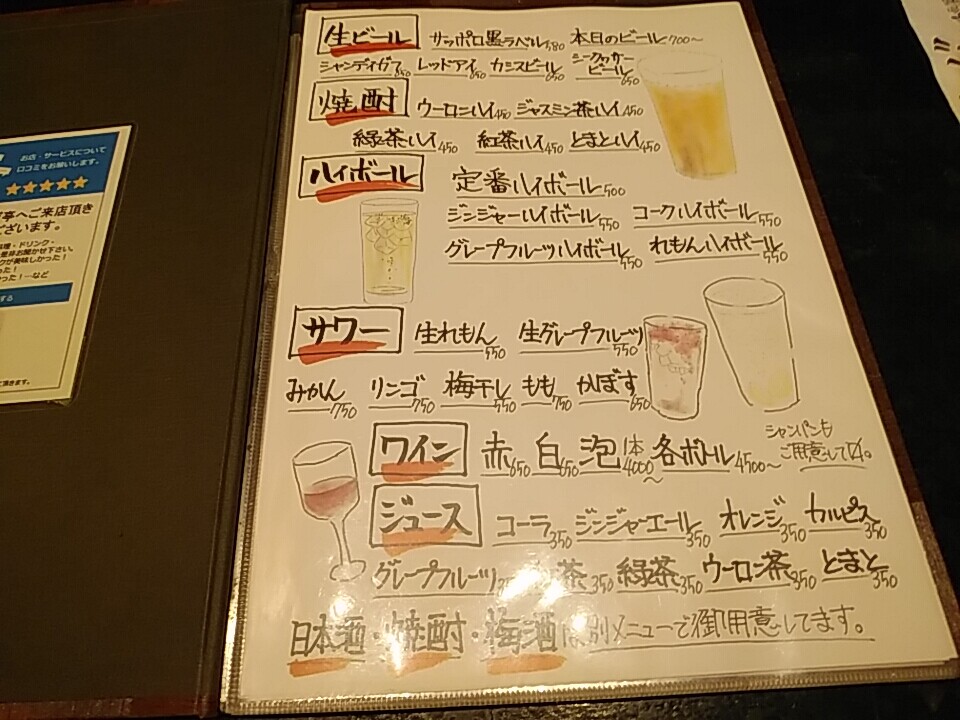 お店・サービスについて
口コミをお願いします。
★★★★★
亭へご来店頂き
ございます。
料理・ドリンク・
是非お聞かせ下さい。
クが美味しかった!
った!
かった!…など
する
頂きます。
生ビール サッポロ黒ラベル580 本日のビール700〜
シャンディガフ650 レッドアイ650 カシスビール650 シークァーサービール650
焼酎 ウーロンハイ450 ジャスミン茶ハイ450
緑茶ハイ450 紅茶ハイ450 とまとハイ450
ハイボール 定番ハイボール500
ジンジャーハイボール550 コークハイボール550
グレープフルーツハイボール550 れもんハイボール550
サワー 生れもん550 生グレープフルーツ550
みかん750 リンゴ750 梅干し550 もも750 かぼす650
ワイン 赤650 白650 泡1本4000〜 各ボトル4500〜 シャンパンもご用意して〼。
ジュース コーラ350 ジンジャーエール350 オレンジ350 カルピス350
グレープフルーツ 茶350 緑茶350 ウーロン茶350 とまと350
日本酒・焼酎・梅酒は別メニューで御用意してます。